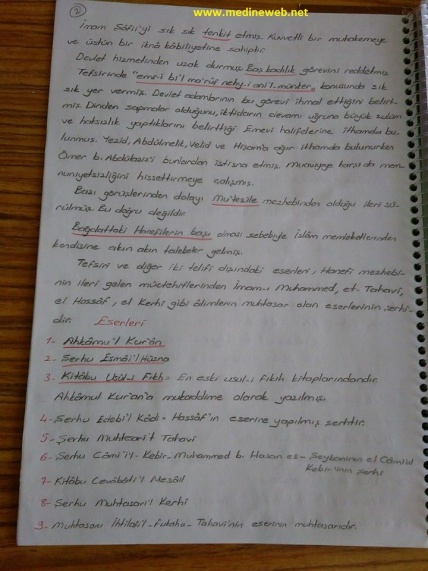 www.medineweb.net
2
İmam Şâfii'yi sık sık tenkit etmiş. Kuvvetli bir muhakemeye
ve üstün bir ikna kâbiliyetine sahiptir.
Devlet hizmetinden uzak durmuş. Baş kadılık görevini reddetmiş
Tefsirinde "emr-i bi'l ma'rûf nehy-i ani'l-münker" konusunda sık
sık yer vermiş. Devlet adamlarının bu görevi ihmal ettiğini belirt-
miş. Dinden sapmalar olduğunu, iktidarın devamı uğruna büyük zulüm
ve haksızlık yaptıklarını belirttiği Emevi halifelerine ithamda bu-
lunmuş. Yezid, Abdülmelik, Velid ve Hişam'a ağır ithamda bulunurken
Ömer b. Abdülaziz'i bunlardan istisna etmiş. Muaviyeye karşı da mem-
nuniyetsizliğini hissettirmeye çalışmış.
Bazı görüşlerinden dolayı Mu'tezile mezhebinden olduğu ileri sü-
rülmüş. Bu doğru değildir.
Bağdattaki Hanefilerin başı olması sebebiyle İslâm memleketlerinden
kendisine akın akın talebeler gelmiş.
Tefsiri ve diğer iki telifi dışındaki eserleri, Hanefi mezhebi-
nin ileri gelen müctehitlerinden İmam-ı Muhammed, et-Tahavi,
el Hassâf, el Kerhi gibi âlimlerin muhtasar olan eserlerinin şerhi-
dir. Eserleri
1- Ahkâmu'l Kur'ân
2- Şerhu Esmâi'l Hüsna
3- Kitâbu Usûl-i Fıkh = En eski usul-i fıkıh kitaplarındandır.
Ahkâmul Kur'an'a mukaddime olarak yazılmış.
4- Şerhu Edebi'l Kâdı - Hassâf'ın eserine yapılmış şerhtir.
5- Şerhu Muhtasari't Tahavi
6- Şerhu Câmi'il-Kebir-Muhammed b. Hasan eş-Şeybaninin el Câmiul
Kebir'inin şerhi
7- Kitâbu Cevâbâti'l Mesâil
8- Şerhu Muhtasari'l Kerhi
9- Muhtasaru İhtilafi'l-Fukaha-Tahavi'nin eserinin muhtasarıdır.